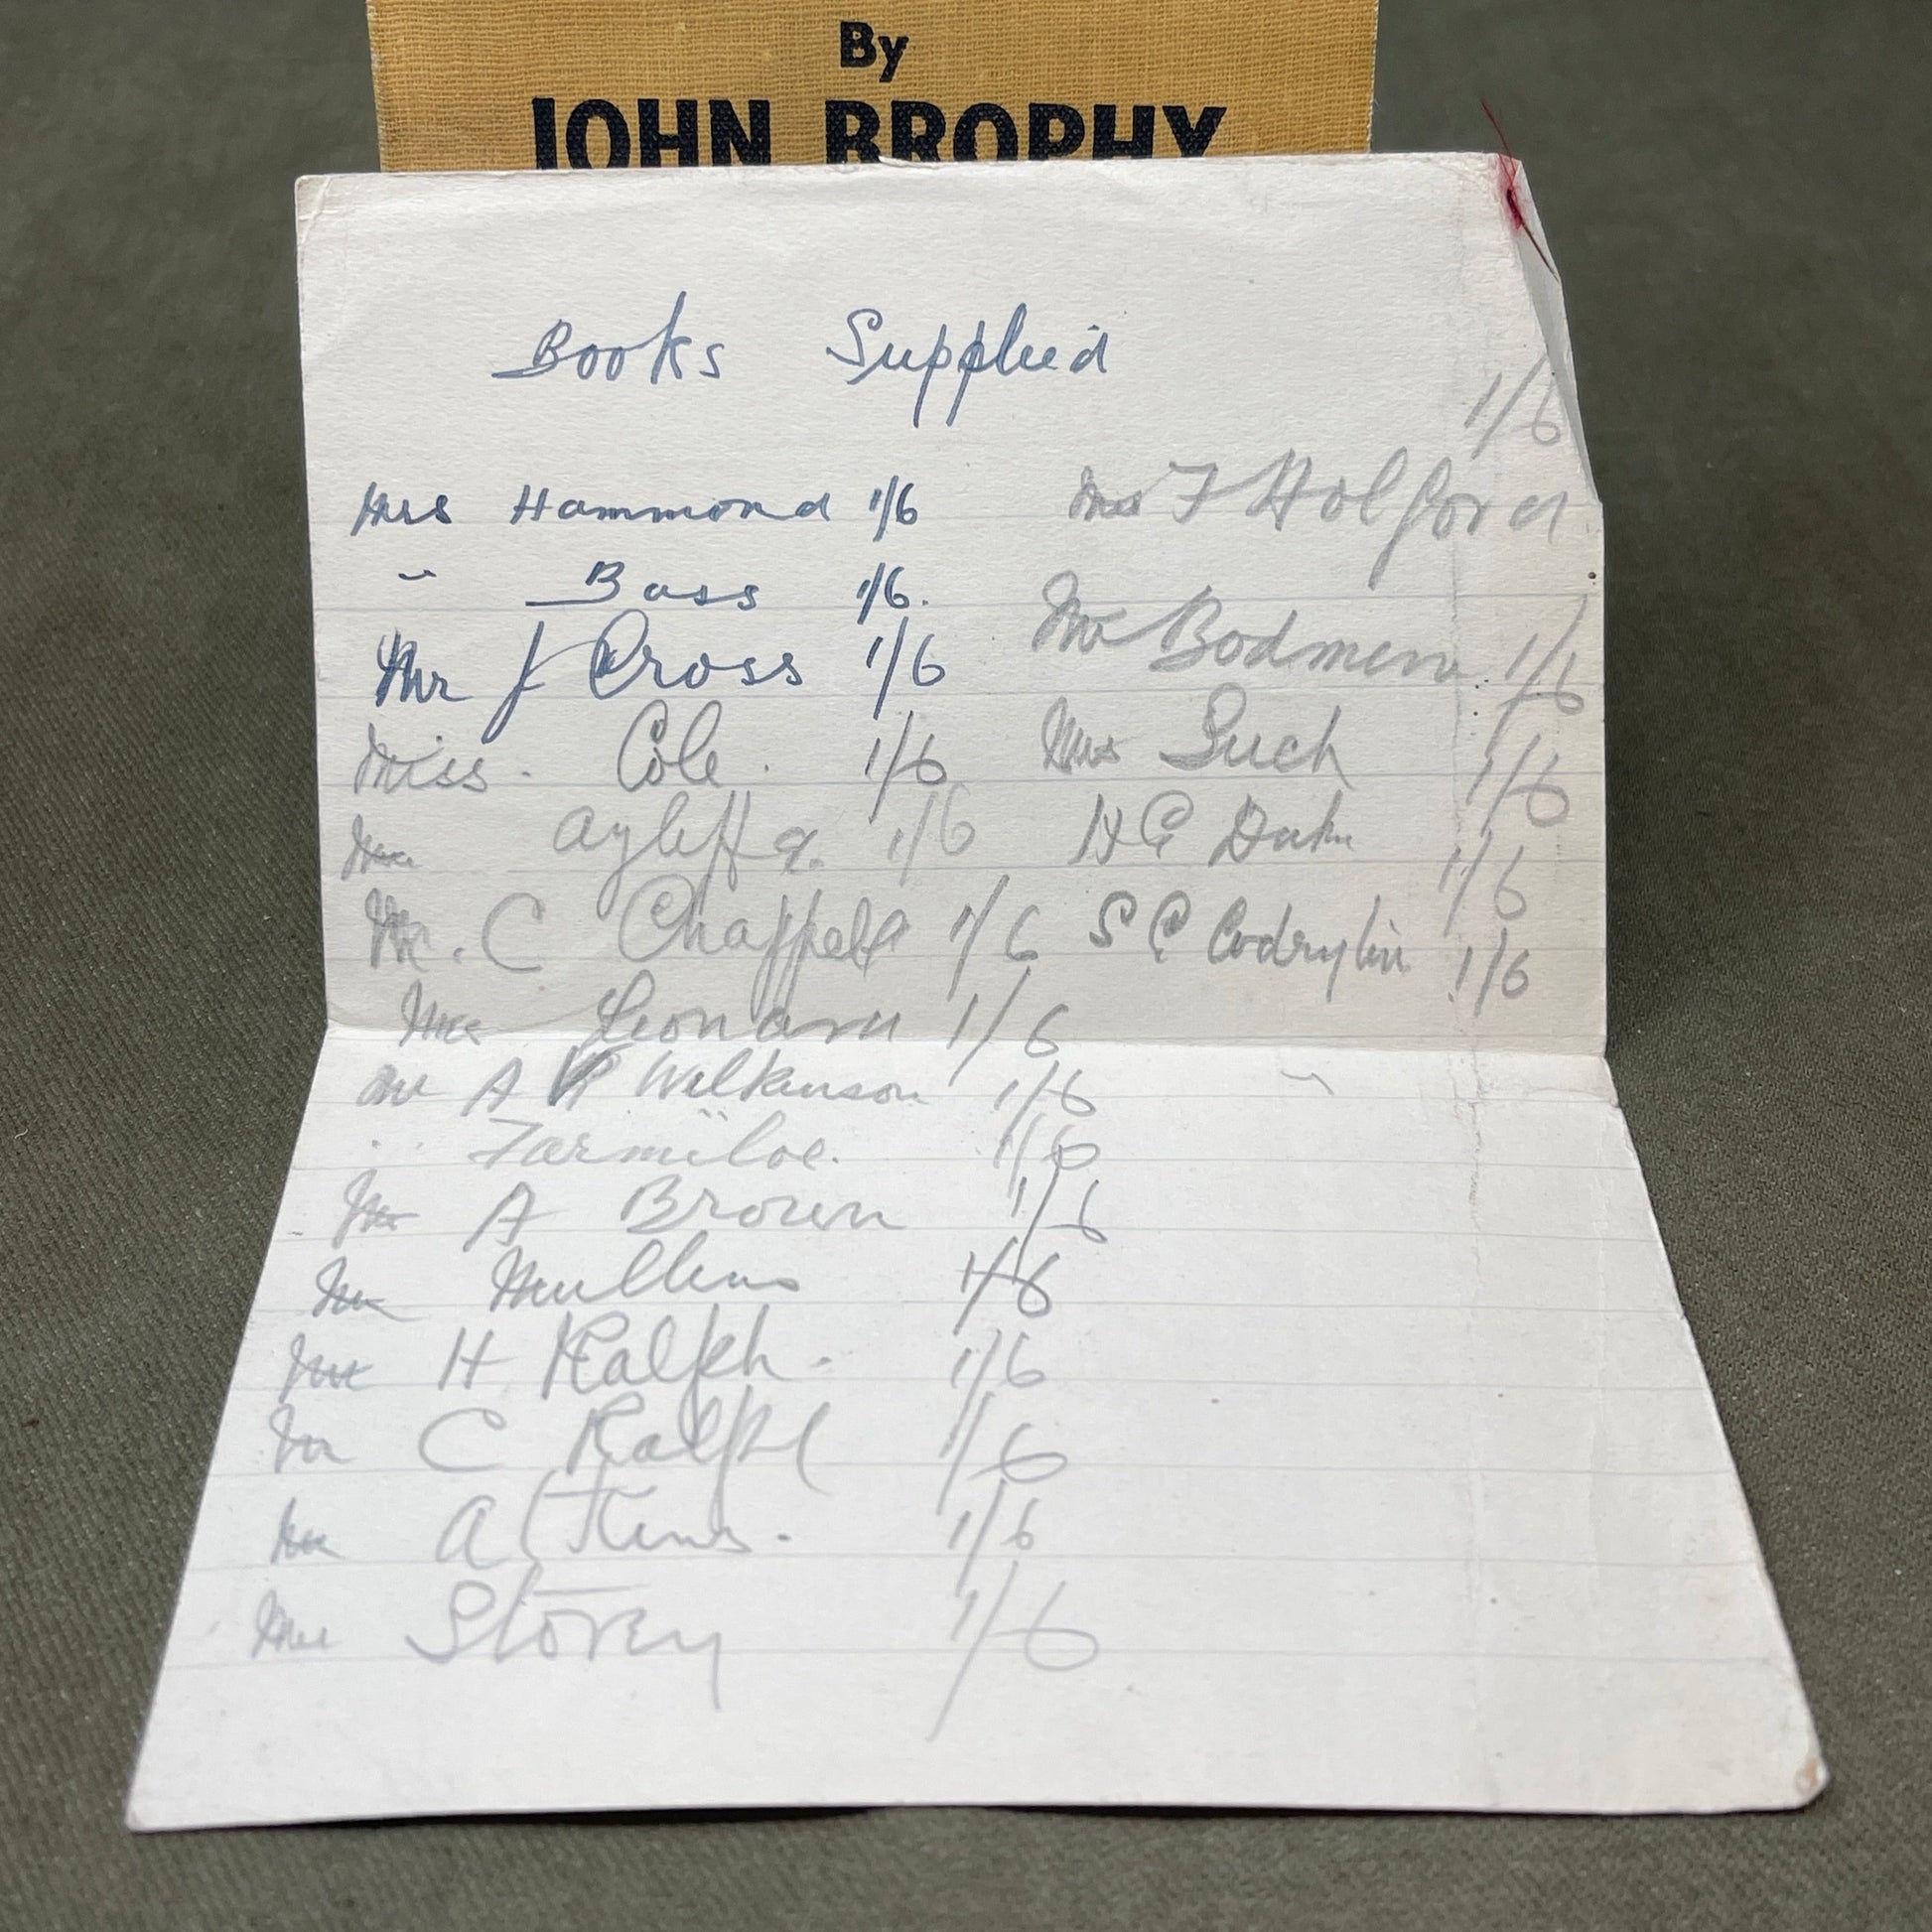 By
JOHN BROPHY
Books Supplied
Mrs Hammond 1/6
" Bass 1/6.
Mr J Cross 1/6
Miss. Cole. 1/6
Ayliffe. 1/6
Mr. C Chappell 1/6
Mrs Leonard 1/6
Mr A Wilkinson 1/6
" Farmiloe. 1/6
Mr A Brown 1/6
Mr Mullins 1/6
Mr H Ralph. 1/6
Mr C Ralph 1/6
Mr Atkins. 1/6
Mrs Storey 1/6
1/6
Mrs F Holford
Mr Bodmen 1/6
Mrs Such 1/6
H G Duke 1/6
S C 1/6